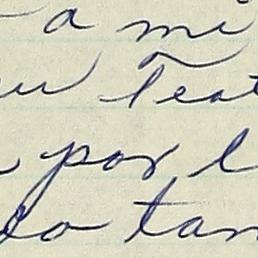 a mi
Teat
por l
lo tan